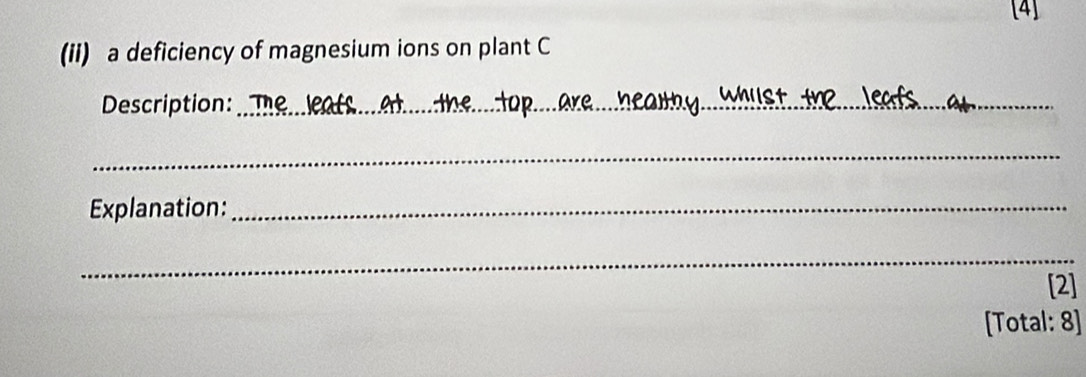 [4]
(ii) a deficiency of magnesium ions on plant C
Description: The leafs at the top are healthy whilst the leafs at
Explanation:
[2]
[Total: 8]